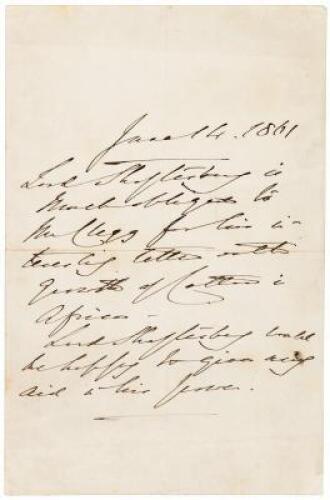 June 14. 1861
Lord Shaftesbury is
much obliged to
Mr Clegg for his in-
teresting letter on the
Growth of Cotton in
Africa -
Lord Shaftesbury would
be happy to give any
aid in his power.